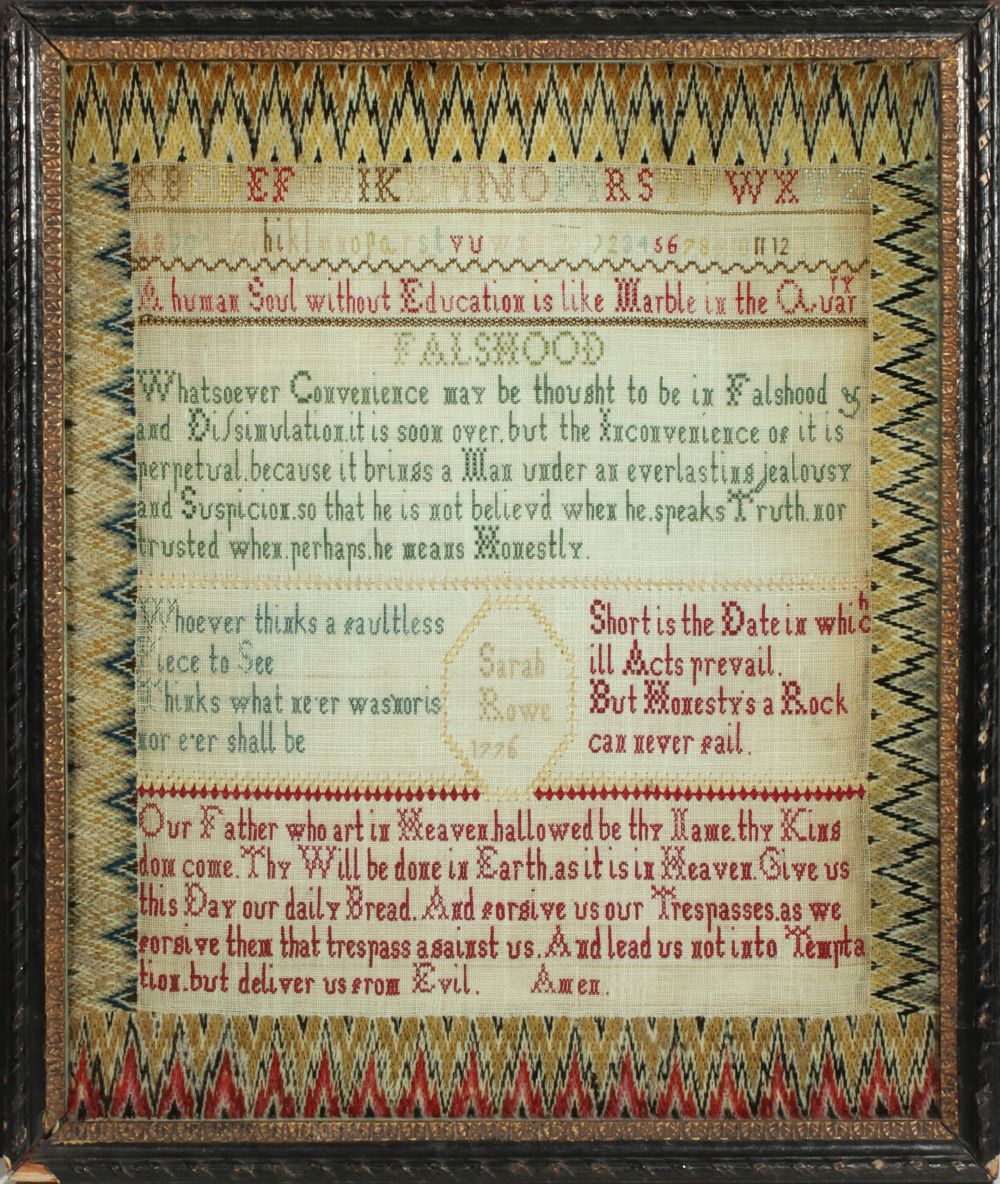 ABCDEF HIKLMNOPQRSTVWXYZ
hiklmnopqrst vu wx 1234567891011 12
A human Soul without Education is like Marble in the Quarry
FALSHOOD
Whatsoever Convenience may be thought to be in Falshood &
and Dissimulation.it is soon over.but the Inconvenience of it is
perpetual.because it brings a Man under an everlasting jealousy
and Suspicion.so that he is not believ'd when he.speaks Truth.nor
trusted when.perhaps.he means Honestly.
Whoever thinks a faultless
Piece to See
Thinks what ne'er was'nor is
nor e'er shall be
Sarah
Rowe
1776
Short is the Date in which
ill Acts prevail.
But Honesty's a Rock
can never fail.
Our Father who art in Heaven.hallowed be thy Name.thy King
dom come.Thy Will be done in Earth.as it is in Heaven.Give us
this Day our daily Bread.And forgive us our Trespasses.as we
forgive them that trespass against us.And lead us not into Tempta
tion.but deliver us from Evil. Amen.